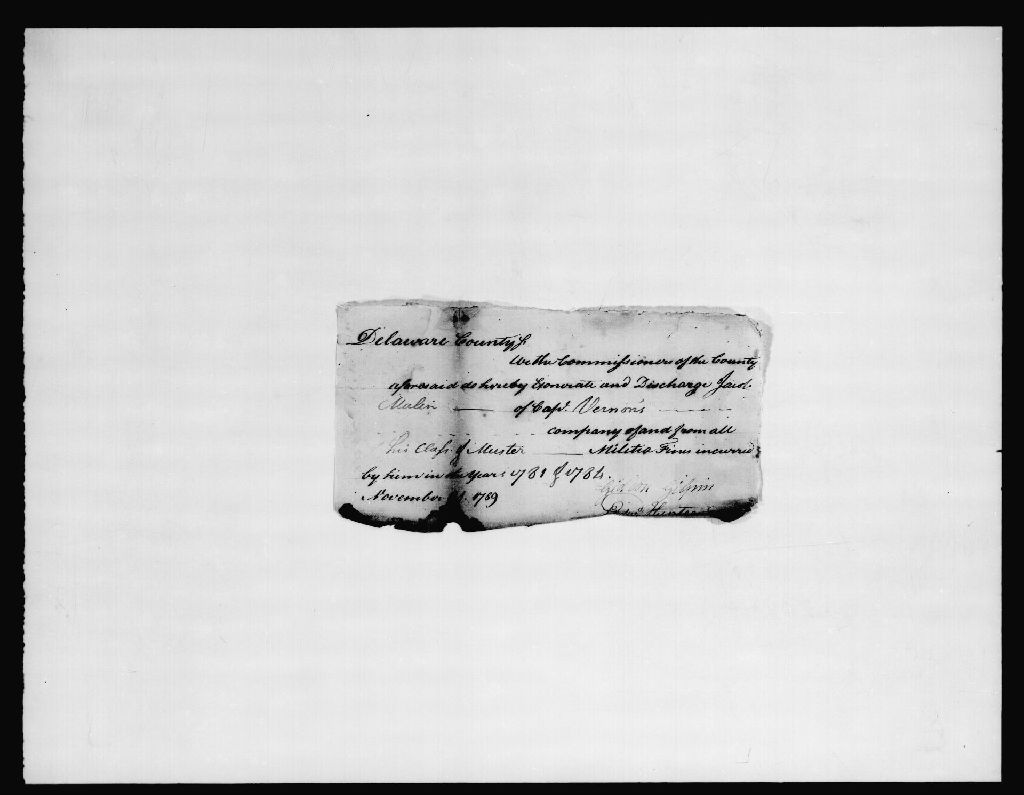 Delaware County Ss.
We the Commissioners of the County
aforesaid do hereby Exonerate and Discharge Jacob
Malin of Capt. Vernon's
company of and from all
his Class of Muster Militia Fines incurred
by him in the Years 1781 & 1784
November 1789
Gideon Gilpin
Hunter